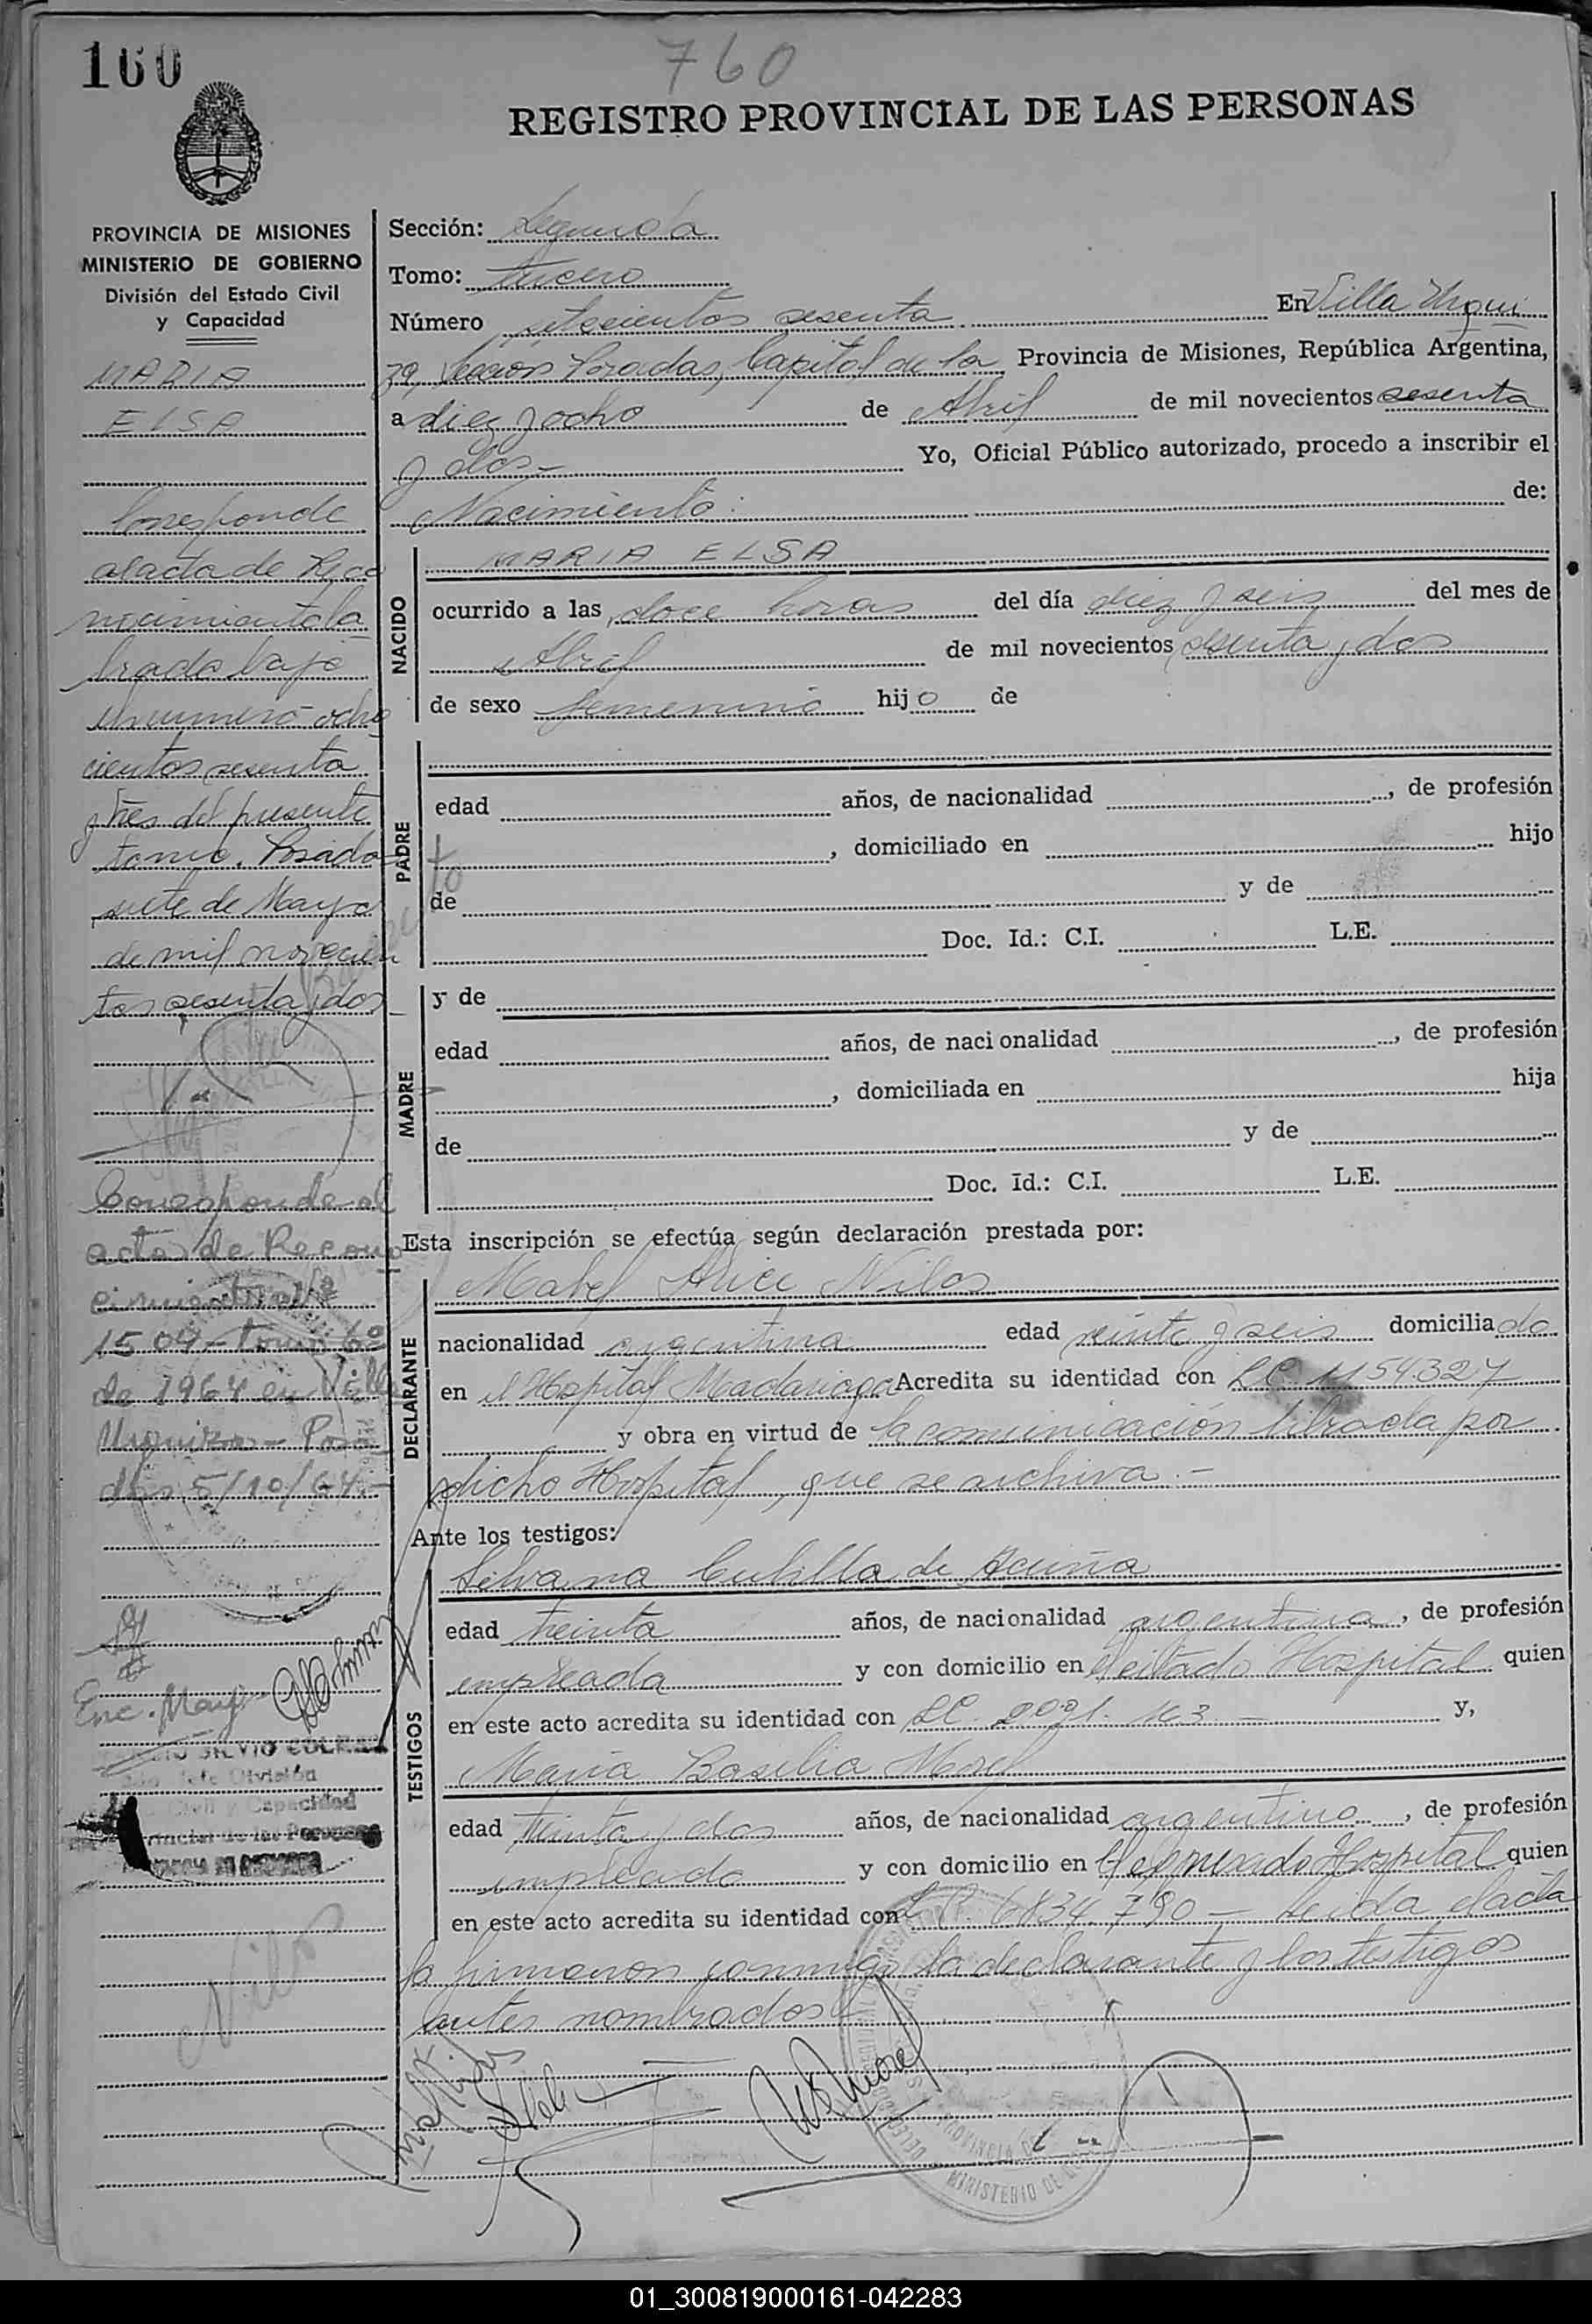 160
760
REGISTRO PROVINCIAL DE LAS PERSONAS
PROVINCIA DE MISIONES
MINISTERIO DE GOBIERNO
División del Estado Civil
y Capacidad
MARIA
ELSA
Corresponde
al acta de Reco
nocimiento la
brada bajo
el numero ocho
cientos sesenta
y tres del presente
tomo. Posadas
siete de Mayo
de mil novecien
tos sesenta y dos
Corresponde al
acta de Recono
cimiento Nº
1509 - tomo 6º
de 1964 en Villa
Urquiza - Posa
das 5/10/64.-
Enc. Marg.
SILVIO
Jefe División
Civil y Capacidad
Provincial de las Personas
Nilos
Sección: Segunda
Tomo: tercero
Número setecientos sesenta En Villa Urqui
za, Sección Posadas, Capital de la Provincia de Misiones, República Argentina,
a diez y ocho de Abril de mil novecientos sesenta
y dos - Yo, Oficial Público autorizado, procedo a inscribir el
Nacimiento: de:
NACIDO
MARIA ELSA
ocurrido a las doce horas del día diez y seis del mes de
Abril de mil novecientos sesenta y dos
de sexo femenino hijo de
PADRE
edad años, de nacionalidad , de profesión
, domiciliado en hijo
de y de
Doc. Id.: C.I. L.E.
MADRE
y de
edad años, de nacionalidad , de profesión
, domiciliada en hija
de y de
Doc. Id.: C.I. L.E.
Esta inscripción se efectúa según declaración prestada por:
DECLARANTE
Mabel Alice Nilos
nacionalidad argentina edad veinte y seis domiciliado
en el Hospital Madariaga Acredita su identidad con LC 1154.327
y obra en virtud de la comunicación librada por
dicho Hospital, que se archiva.-
Ante los testigos:
TESTIGOS
Silvana Cubilla de Acuña
edad treinta años, de nacionalidad argentina, de profesión
empleada y con domicilio en el citado Hospital quien
en este acto acredita su identidad con LC. 2091.163 - y,
Maria Basilia Morel
edad treinta y dos años, de nacionalidad argentina, de profesión
empleada y con domicilio en el expresado Hospital quien
en este acto acredita su identidad con L.C. 6834.790 - Leida el acta
la firmaron conmigo la declarante y los testigos
antes nombrados
PROVINCIA DE
MINISTERIO DE
01_300819000161-042283